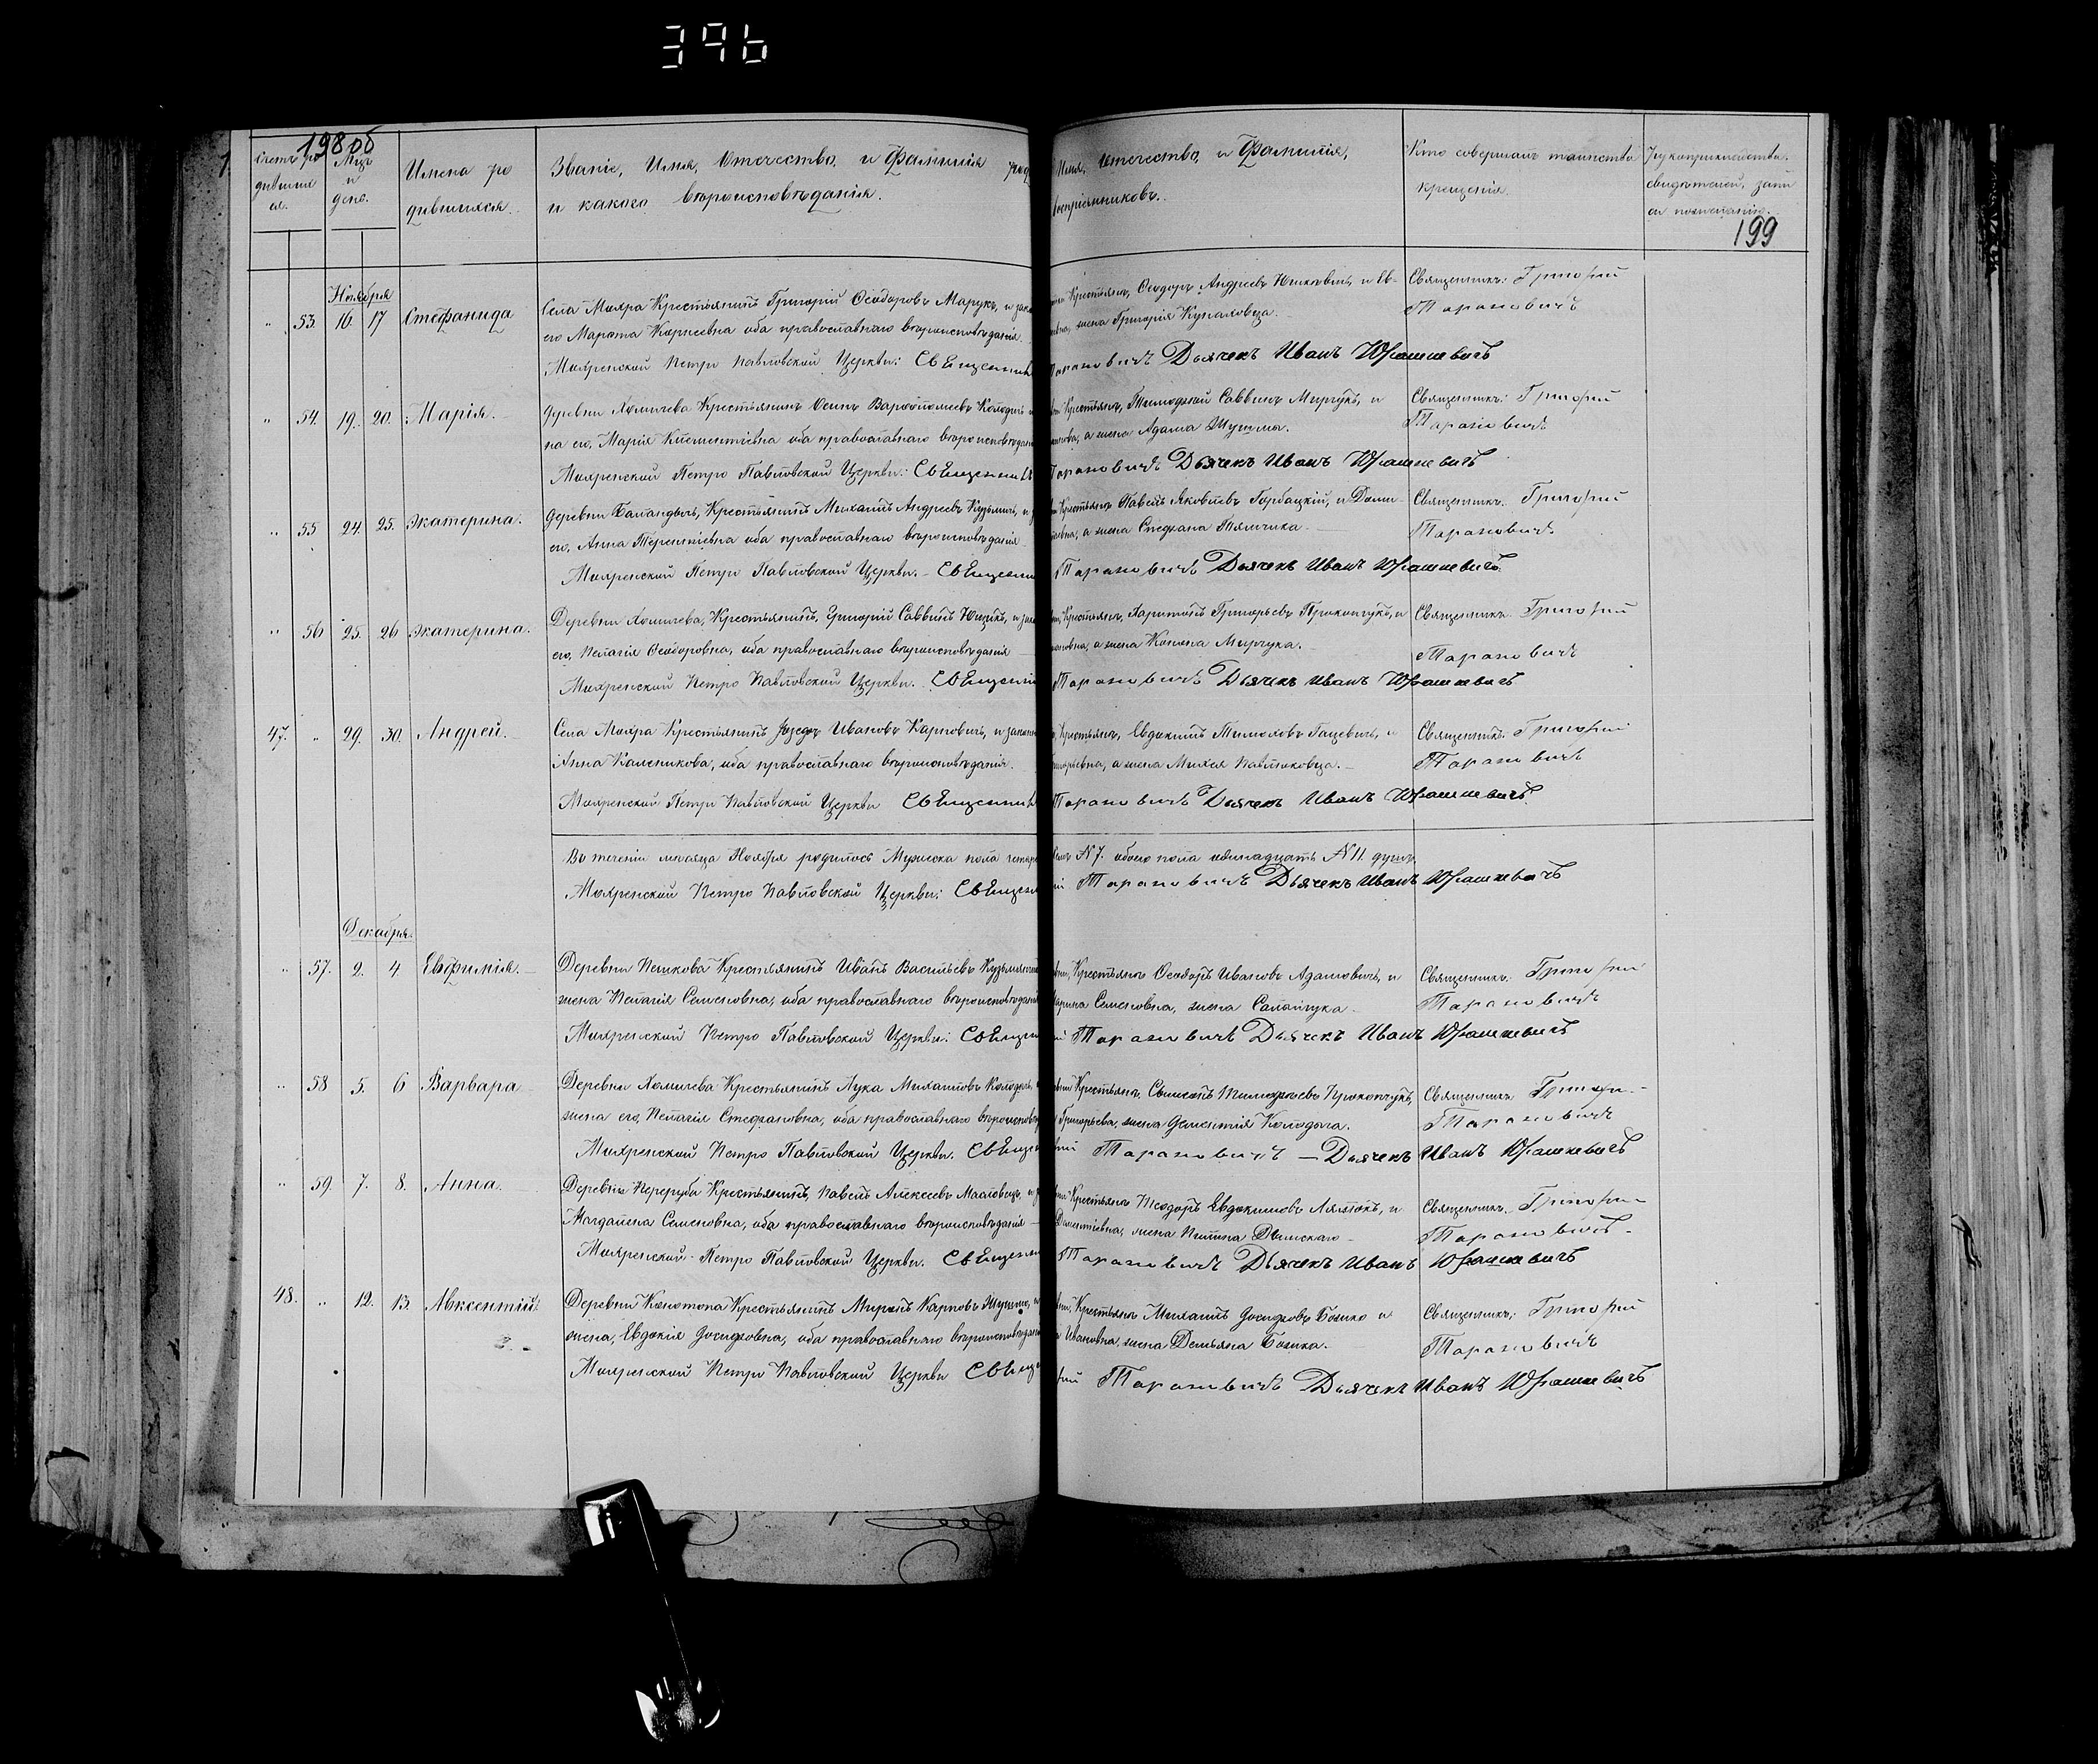 396
198 об
Счетъ ро
дивших
ся.
Мцъ
и
день.
Имена ро
дившихся.
Званіе, Имя, Отечество, и Фамилія
и какого вѣроисповѣданія.
Имя, отечество, и Фамилія,
воспріемниковъ.
Кто совершалъ таинство
крещенія.
свидѣтелей, запи
си по желанію.
199
Ноября
" 53. 16. 17 Стефанида
Села Мохра Крестьянинъ Григорій Ѳеодоровъ Марукъ, и
его Марѳа Корнеевна оба православнаго вѣроисповѣданія
Мохренской Петро Павловской Церкви: Священникъ
Крестьян. Ѳеодоръ Андреевъ и Ев-
жена Григорія Купаловца.
Тарановичъ Дьячекъ Иванъ Юрашкевичъ
Священникъ: Григорій
Тарановичъ
" 54. 19. 20. Марія.
Деревни Хомичева Крестьянинъ Осипъ Варѳоломеевъ Колодичъ
на его, Марія Климентіевна оба православнаго вѣроисповѣдан
Мохренской Петро Павловской Церкви: Священникъ
Крестьян. Тимоѳей Саввинъ Мирчукъ, и
а жена Адама Шутма.
Тарановичъ Дьячекъ Иванъ Юрашкевичъ
Священникъ: Григорій
Тарановичъ
" 55 24. 25. Экатерина.
Деревни Крестьянинъ Михаилъ Андреевъ Кузьмичъ, и
его, Анна Терентіевна оба православнаго вѣроисповѣданія
Мохренской Петро Павловской Церкви. – Священни
Крестьян. Павелъ Яковлевъ Горбацкій, и Доми-
а жена Стефана
Тарановичъ Дьячекъ Иванъ Юрашкевичъ
Священникъ. Григорій
Тарановичъ.
" 56 25. 26 Экатерина.
Деревни Хомичева, Крестьянинъ, Григорій Саввинъ и
его, Пелагія Ѳеодоровна, оба православнаго вѣроисповѣданія
Мохренской Петро Павловской Церкви. Священни
Крестьян. Харитонъ Григорьевъ Прокопчукъ, и
а жена Козьма Мирчука.
Тарановичъ Дьячекъ Иванъ Юрашкевичъ
Священникъ Григорій
Тарановичъ
47. " 29. 30. Андрей.
Села Мохра Крестьянинъ Іосифъ Ивановъ Карповичъ, и закон
Анна Каленикова, оба православнаго вѣроисповѣданія.
Мохренской Петро Павловской Церкви Священни
Крестьян. Евдокимъ Гацевичъ, и
а жена Михея Павлюковца. –
Тарановичъ Дьячекъ Иванъ Юрашкевичъ
Священникъ: Григорій
Тарановичъ
Въ теченіи мѣсяца Ноября родилось Мужеска пола четыре
Мохренской Петро Павловской Церкви: Священ
N 7. обоего пола одинадцать N 11. душъ
Тарановичъ Дьячекъ Иванъ Юрашкевичъ
Декабря.
" 57. 2. 4 Евфимія.
Деревни Пешкова Крестьянинъ Иванъ Васильевъ
жена Пелагія Семеновна, оба православнаго вѣроисповѣдан
Мохренской Петро Павловской Церкви: Священ
Крестьян. Ѳеодоръ Ивановъ Адамовичъ, и
Семеновна, жена Самайчука
Тарановичъ Дьячекъ Иванъ Юрашкевичъ
Священникъ: Григорій
Тарановичъ
" 58 5. 6 Варвара
Деревни Хомичева Крестьянинъ Лука Михаиловъ Колодичъ
жена его, Пелагія Стефановна, оба православнаго вѣроисповѣд
Мохренской Петро Павловской Церкви. Священ
Крестьян. Тимоѳеевъ Прокопчукъ,
Григорьева, жена Дементія Колодича.
Тарановичъ – Дьячекъ Иванъ Юрашкевичъ
Священникъ Григорі-
Тарановичъ
" 59. 7. 8. Анна.
Деревни Переруба Крестьянинъ, Павелъ Алексеевъ и
Магдалена Семеновна, оба православнаго вѣроисповѣданія –
Мохренской – Петро Павловской Церкви. Священ
Крестьян. Ѳеодоръ Евдокимовъ и
жена
Тарановичъ Дьячекъ Иванъ Юрашкевичъ
Священникъ. Григорій
Тарановичъ
48. " 12. 13. Авксентій.
Деревни Конотопа Крестьянинъ Миронъ Карповъ и
жена, Евдокія Іосифовна, оба православнаго вѣроисповѣдан
Мохренской Петро Павловской Церкви Священ
Крестьян. Михаилъ Іосифовъ Божко и
Ивановна, жена Демьяна Божка.
Тарановичъ Дьячекъ Иванъ Юрашкевичъ
Священникъ: Григорій
Тарановичъ